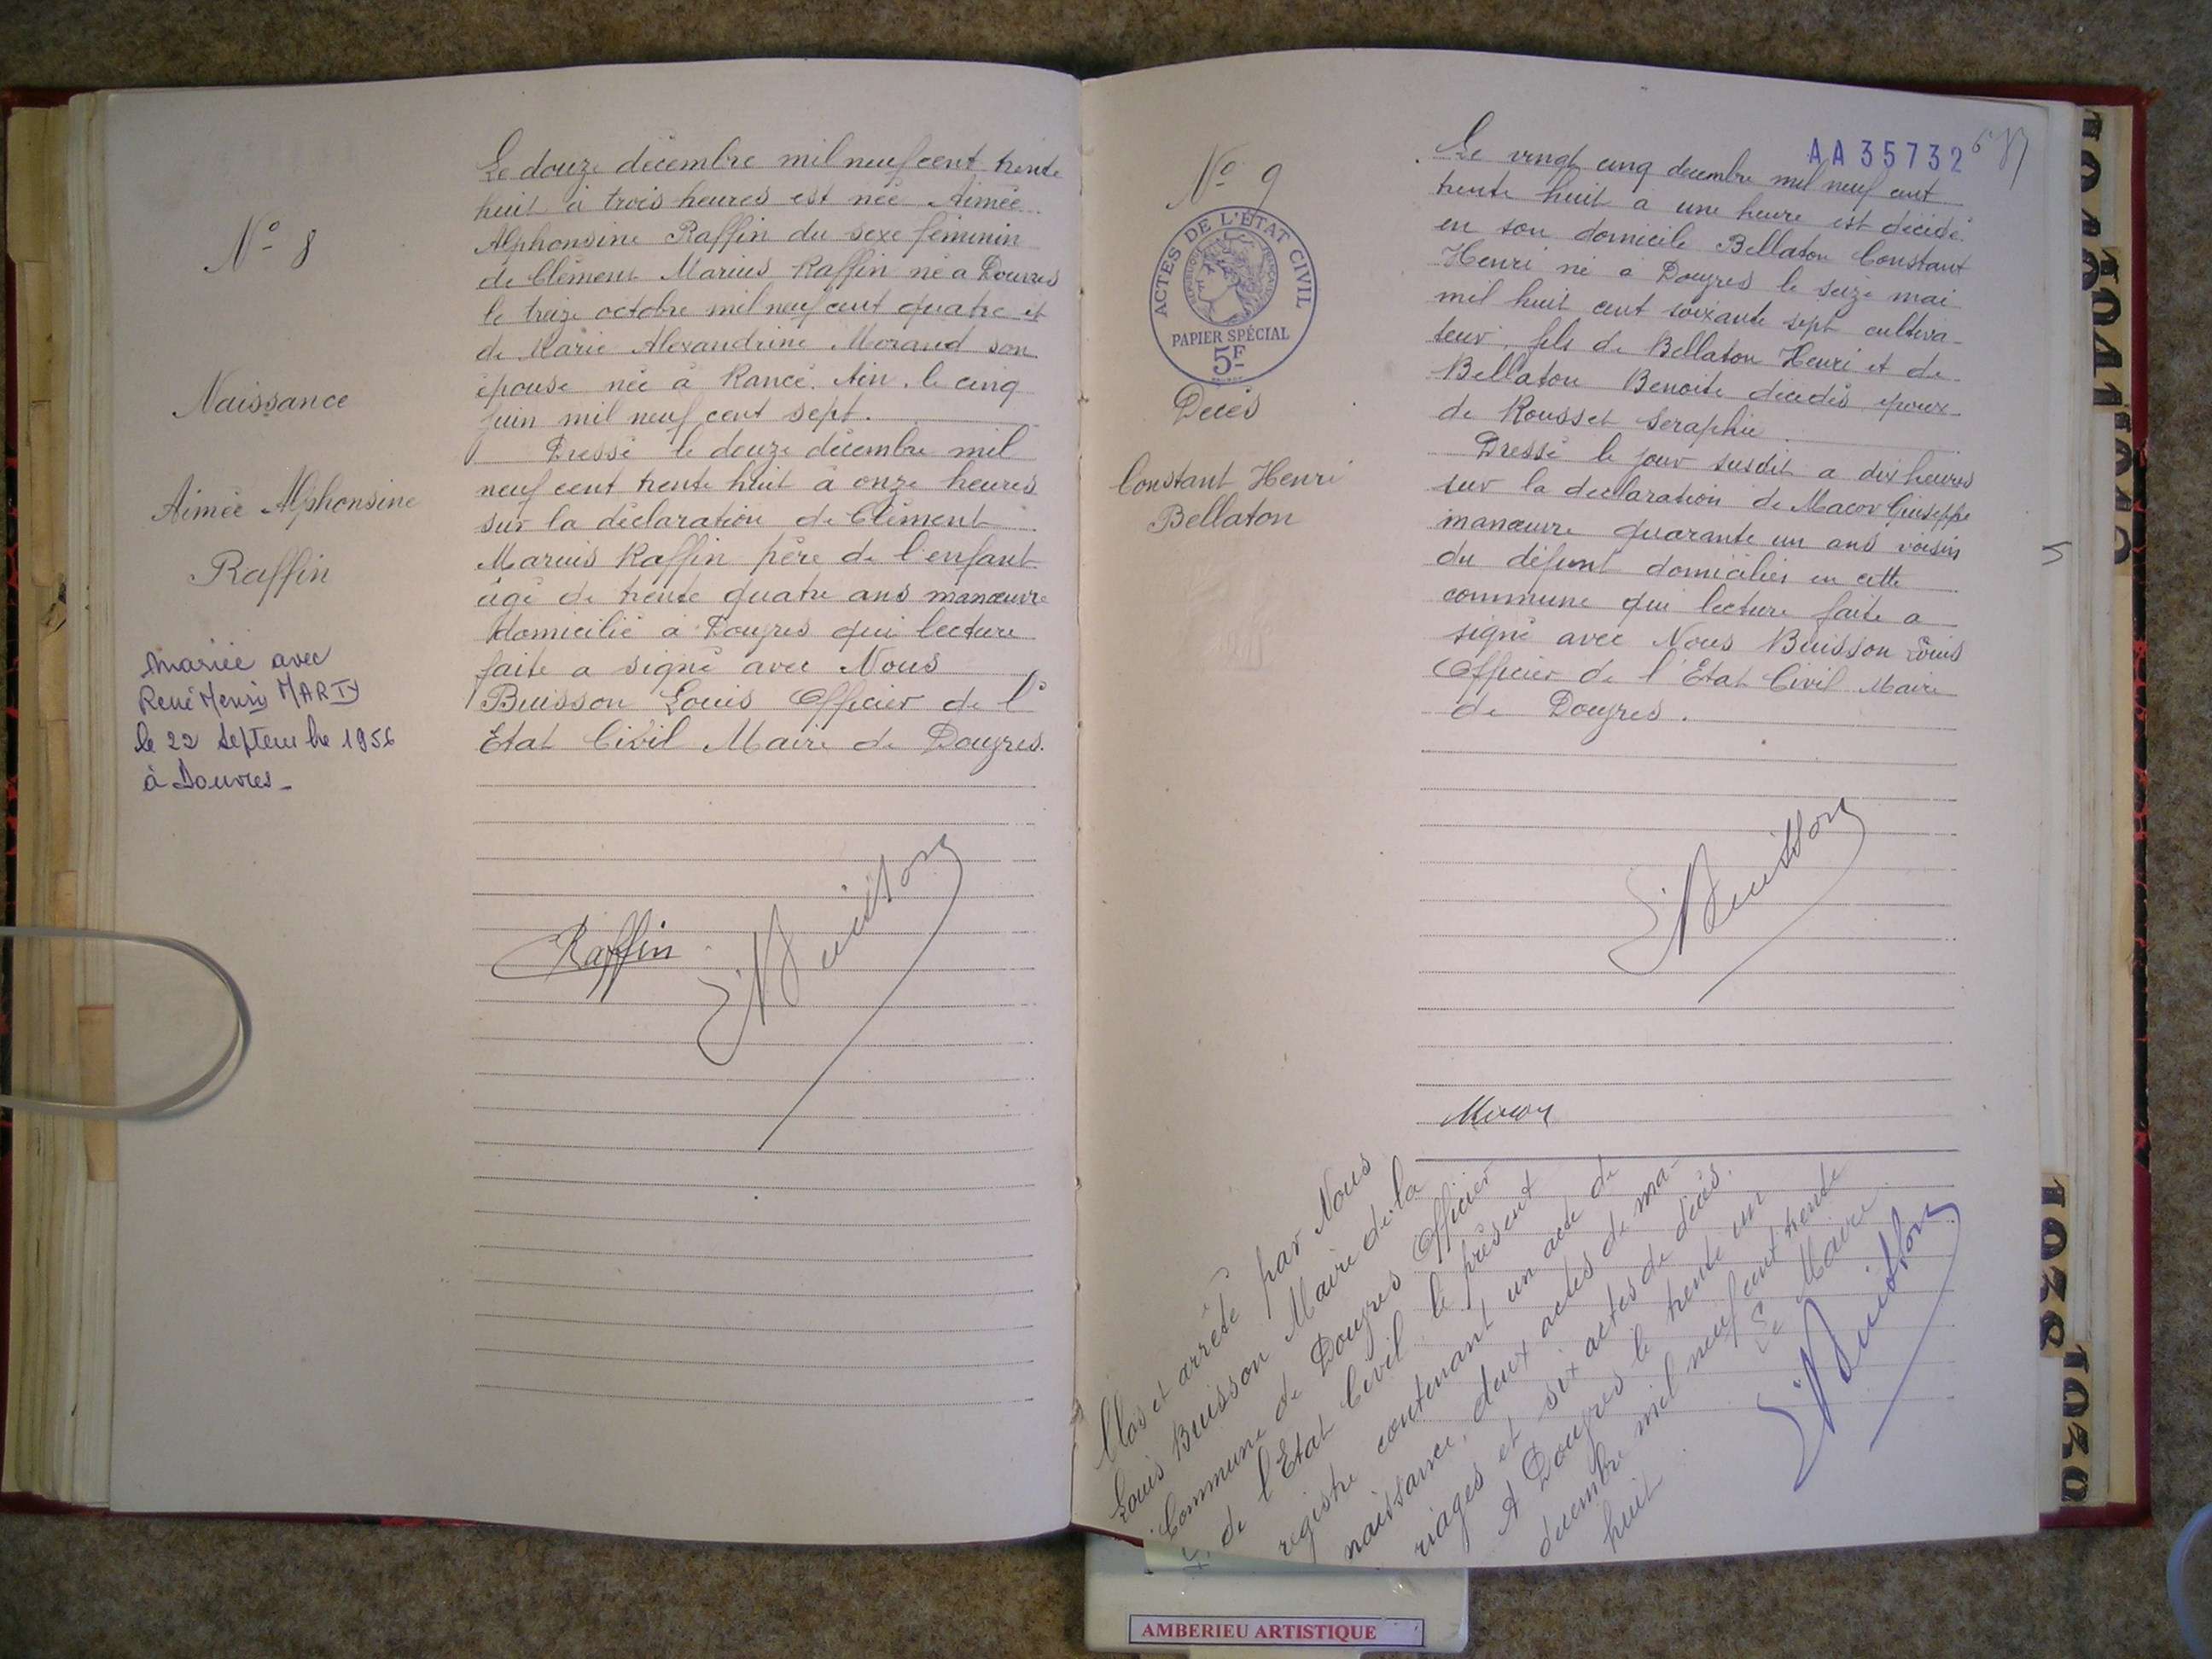 N° 8
Naissance
Aimée Alphonsine
Raffin
mariée avec
René Henri MARTY
le 22 septembre 1956
à Douvres_
Le douze décembre mil neuf cent trente
huit à trois heures est née Aimée
Alphonsine Raffin du sexe féminin
de Clément Marius Raffin né à Douvres
le treize octobre mil neuf cent quatre et
de Marie Alexandrine Morand son
épouse née à Rancé. Ain. le cinq
juin mil neuf cent sept.
Dressé le douze décembre mil
neuf cent trente huit à onze heures
sur la déclaration de Clément
Marius Raffin père de l'enfant
âgé de trente quatre ans manœuvre
domicilié à Douvres qui lecture
faite a signé avec Nous
Buisson Louis Officier de l'
Etat Civil Maire de Douvres.
Raffin
Buisson
AA 35732
N° 9
ACTES DE L'ÉTAT CIVIL
PAPIER SPÉCIAL
5F
Decés
Constant Henri
Bellaton
Le vingt cinq decembre mil neuf cent
trente huit a une heure est décédé
en son domicile Bellaton Constant
Henri né à Douvres le seize mai
mil huit cent soixante sept cultiva-
teur, fils de Bellaton Henri et de
Bellaton Benoite décédés époux
de Rousset Seraphie
Dressé le jour susdit a dix heures
sur la declaration de Macor Giuseppe
manœuvre quarante un ans voisin
du défunt domiciliés en cette
commune qui lecture faite a
signé avec Nous Buisson Louis
Officier de l'Etat Civil Maire
de Douvres.
Buisson
Clos et arrêté par Nous
Louis Buisson Maire de la
Commune de Douvres Officier
de l'Etat Civil le présent
registre contenant un acte de
naissance, deux actes de ma-
riages et six actes de décès.
A Douvres le trente un
decembre mil neuf cent trente
huit
Le Maire
Buisson
AMBERIEU ARTISTIQUE